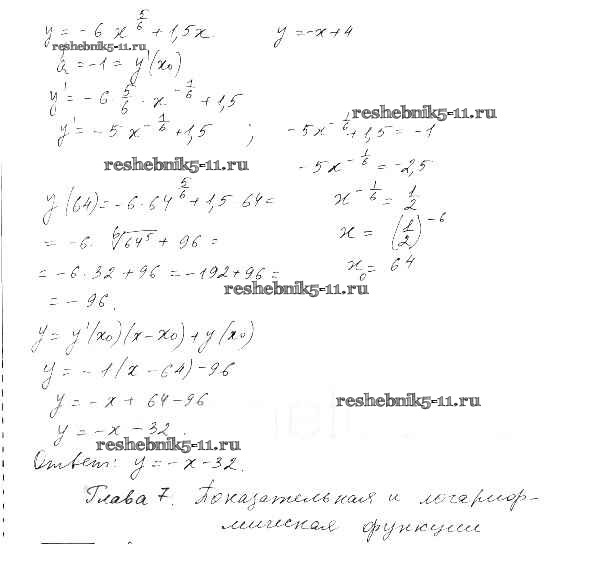 y = -6 x^{5/6} + 1,5x    y = -x + 4
reshebnik5-11.ru
a = -1 = y'(x₀)
y' = -6 5/6 · x^{-1/6} + 1,5
reshebnik5-11.ru
y' = -5 x^{-1/6} + 1,5 ;    -5x^{-1/6} + 1,5 = -1
reshebnik5-11.ru    -5x^{-1/6} = -2,5
y(64) = -6·64^{5/6} + 1,5 64 =    x^{-1/6} = 1/2
= -6· ⁶√64⁵ + 96 =    x = (1/2)^{-6}
= -6·32 + 96 = -192 + 96 =    x₀ = 64
reshebnik5-11.ru
= -96.
y = y'(x₀)(x - x₀) + y(x₀)
y = -1(x - 64) - 96
y = -x + 64 - 96    reshebnik5-11.ru
y = -x - 32.
reshebnik5-11.ru
Ответ: y = -x - 32.
Глава 7. Показательная и логариф-
мическая функции